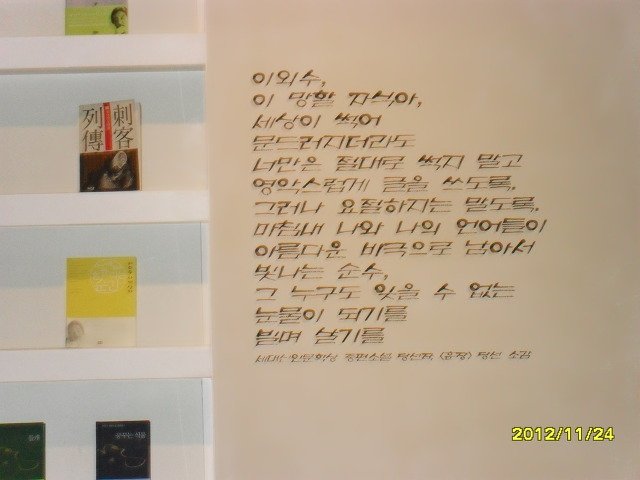 이외수,
이 망할 자식아,
세상이 썩어
문드러지더라도
너만은 절대로 썩지 말고
영악스럽게 글을 쓰도록.
그러나 요절하지는 말도록.
마침내 나와 나의 언어들이
아름다운 비극으로 남아서
빛나는 순수,
그 누구도 잊을 수 없는
눈물이 되기를
빌며 살기를
세대 신인문학상 중편소설 당선작, <훈장> 당선 소감
刺客
列傳
들개
꿈꾸는 식물
2012/11/24